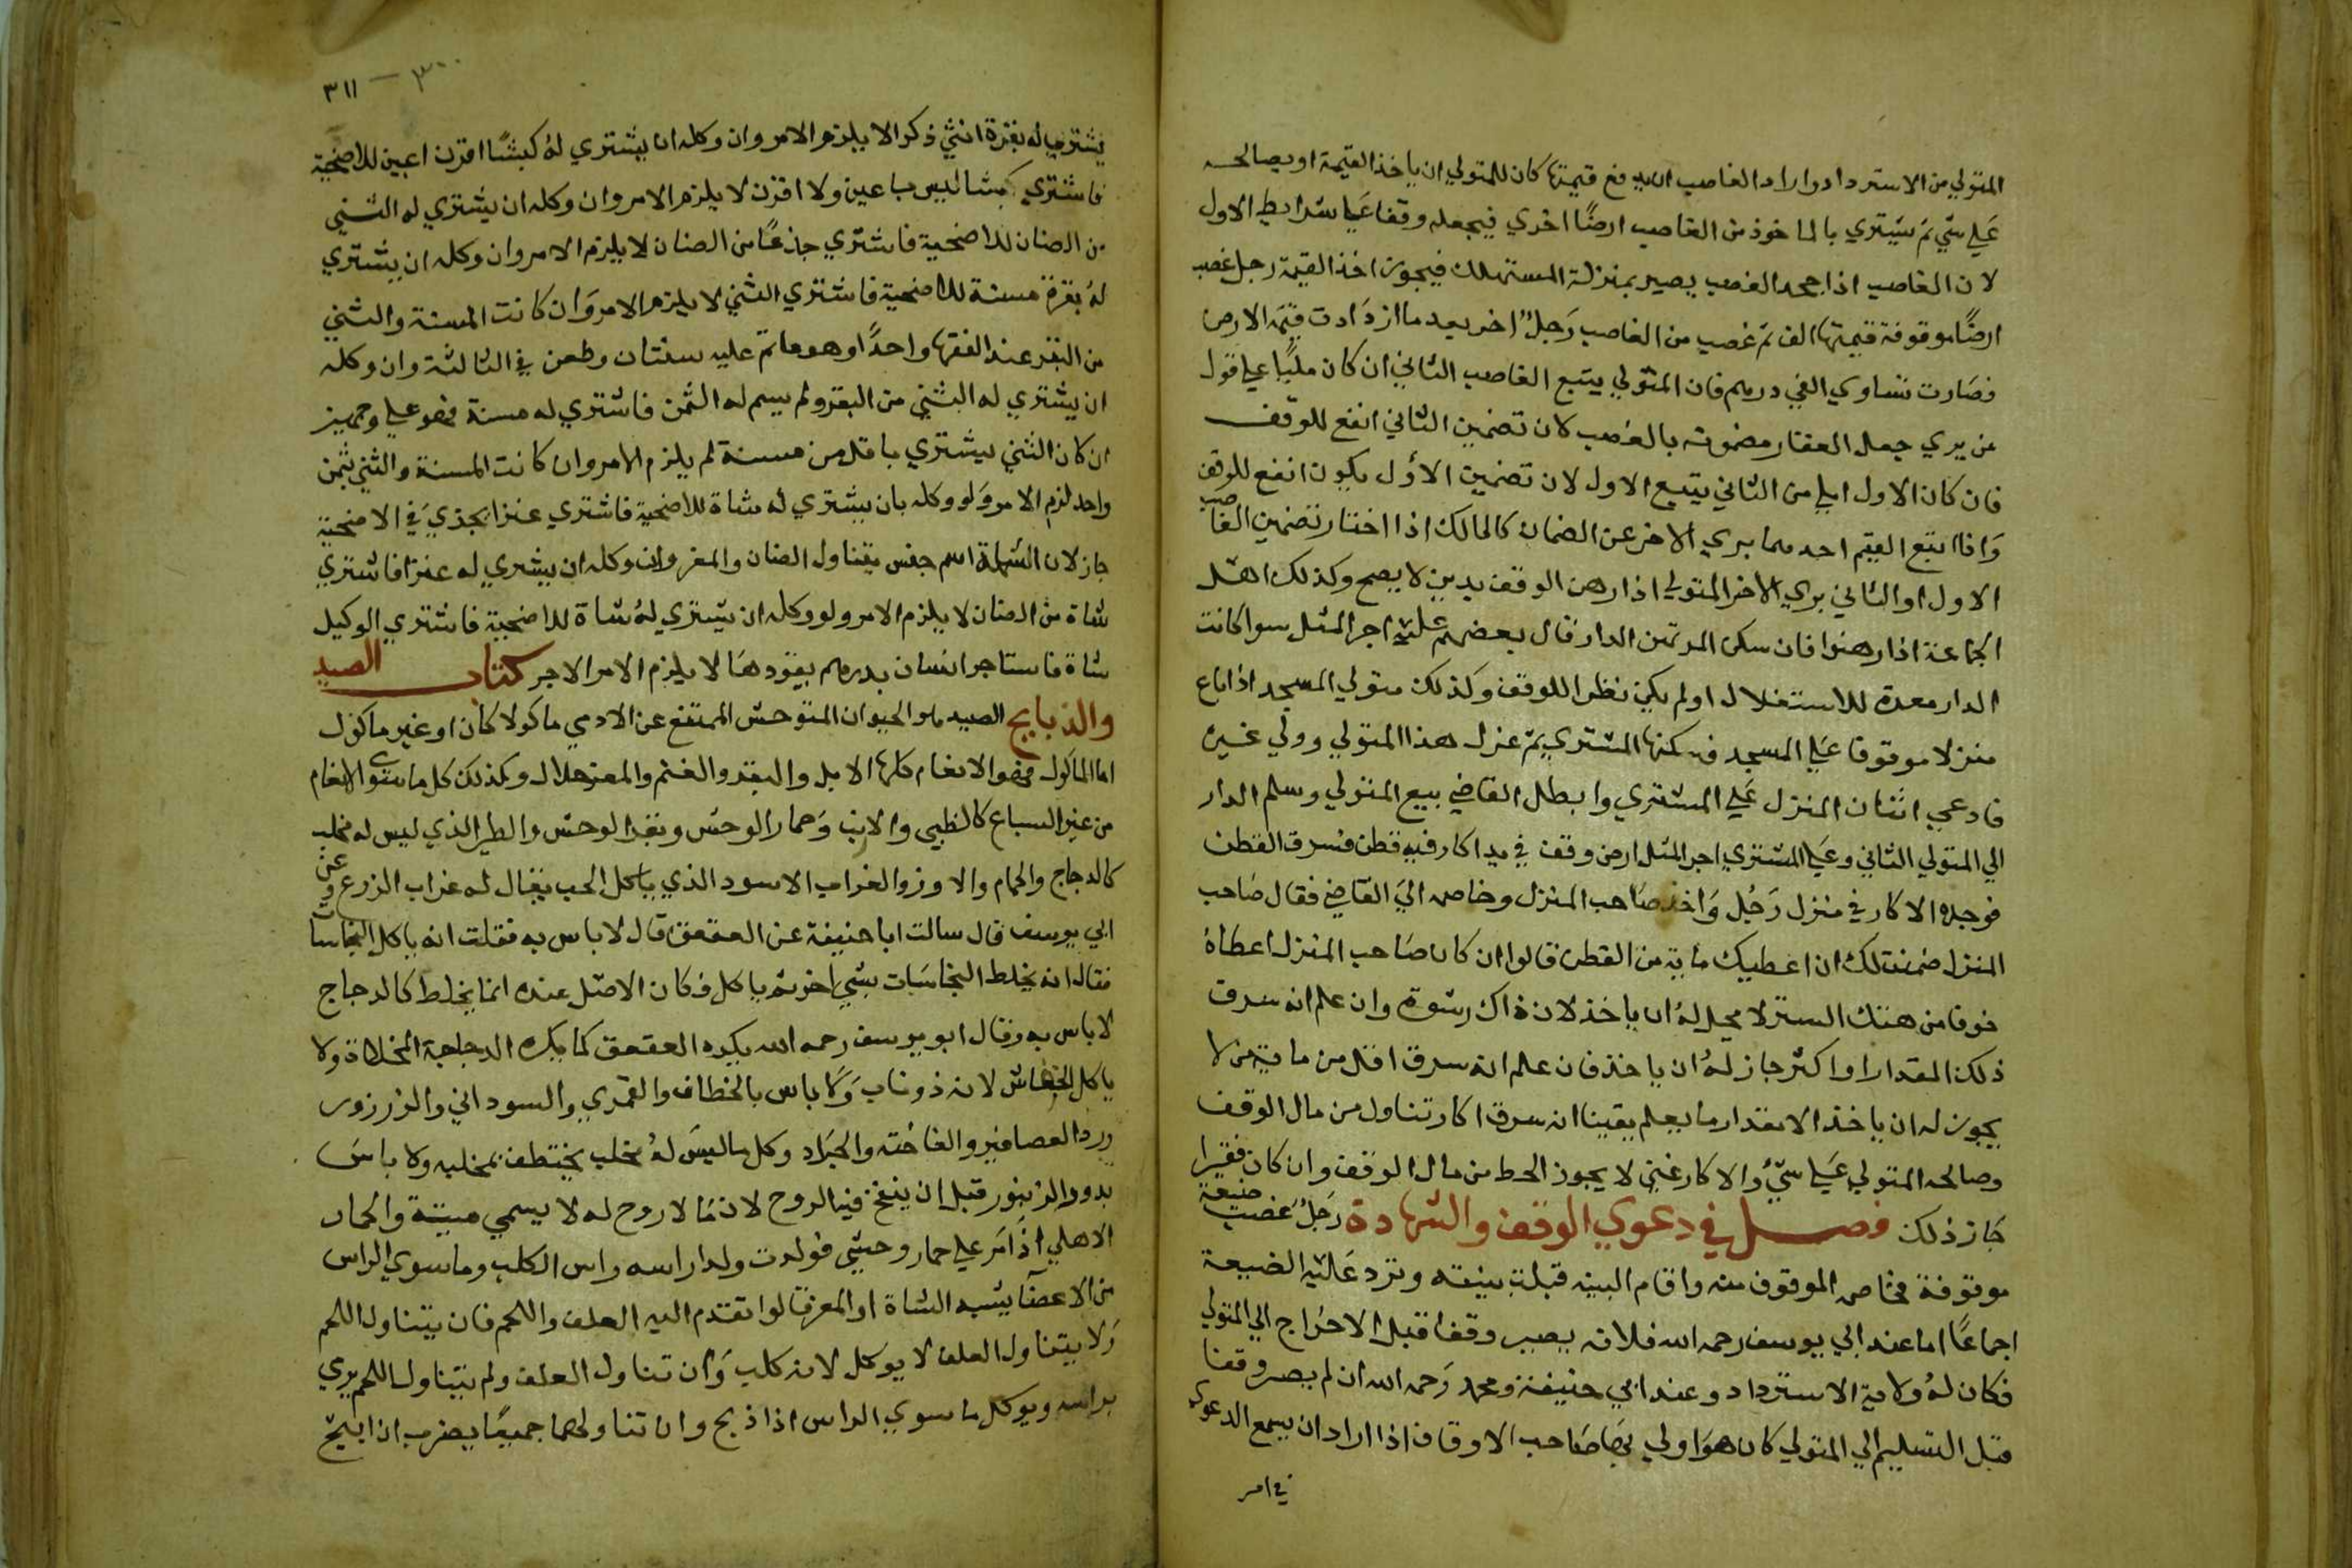 المتولي من الاسترداد واراد الغاصب ان يدفع قيمتها كان للمتولي ان ياخذ القيمة او يصالحه
علي شي ثم يشتري بالماخوذ من الغاصب ارضًا اخري فيجعله وقفا علي شرايط الاول
لان الغاصب اذا جحد الغصب يصير بمنزلة المستهلك فيجوز اخذ القيمة رجل غصب
ارضًا موقوفة قيمتها الف ثم غصب من الغاصب رَجلٌ اخر بعد ما ازدَادت قيمَة الارض
فصَارت تساوي الفي درهم فان المتولي يتبع الغاصب الثاني ان كان مليًا علي قول
من يري جعل العقار مضمونه بالغصب لان تضمين الثاني انفع للوقف
فان كان الاول املي من الثاني يتبع الاول لان تضمين الأول يكون انفع للوقف
وَاذا اتبع القيم احدهما بري الاخر عن الضمان كالمالك اذا اختار تضمين الغاصب
الاول او الثاني بري الاخر المتولي اذا رهن الوقف بدين لا يصح وكذلك اهل
الجماعة اذا رهنوا فان سكن المرتهن الدار قال بعضهم عليه اجر المثل سوا كانت
الدار معدة للاستغلال او لم يكن نظرا للوقف وكذلك متولي المسجد اذا باع
منزلا موقوفا علي المسجد فسكنها المشتري ثم عزل هذا المتولي وولي غيره
فادعي الثان المنزل علي المشتري وابطل القاضي بيع المتولي وسلم الدار
الي المتولي الثاني وعلي المشتري اجر المثل ارض وقف في يد اكار فيه قطن فسرق القطن
فوجده الاكار في منزل رَجُل وَاخذ صَاحب المنزل وخاصم اليَ القاضي فقال صَاحب
المنزل ضمنت لك ان اعطيك ماية من القطن قالوا ان كان صَاحب المنزل اعطاهُ
خوفا من هتك الستر لا يحل لهُ ان ياخذ لان ذاك رشوة وان علم انه سرق
ذلك المقدار او اكثر جاز لهُ ان ياخذ فان علم انه سرق اقل من ماية من لا
يجوز له ان ياخذ الا مقدار ما يعلم يقينا انه سرق اكار تناول من مال الوقف
وصالحه المتولي علي شيُ والاكار غني لا يجوز الحط من مال الوقف وان كان فقيرا
جَاز ذلك فصل في دعوي الوقف والشهادة رَجلٌ غصب ضيعة
موقوفة فخاصم الموقوف منه واقام البينه قبلت بينته وترد عَليه الضيعة
اجماعًا اما عند ابي يوسف رحمه الله فلانه يصير وقفا قبل الاخراج الي المتولي
فكان لهُ ولاية الاسترداد وعند ابي حنيفة ومحمد رَحمه الله ان لم يصر وقفا
قبل التسليم الي المتولي كان هوَ اولي بهَا صَاحب الاوقاف اذا اراد ان يسمع الدعوي
في امر
٣٠٠ – ٣١١
يشتري له بقرة انثي ذكرا لا يلزم الامر وان وكله ان يشتري لهُ كبشًا اقرن اعين للاضحية
فاشتري كبشا ليس باعين ولا اقرن لا يلزم الامر وان وكله ان يشتري له الثني
من الضان للاضحية فاشتري جذعًا من الضان لا يلزم الامر وان وكله ان يشتري
لهُ بقرة مسنة للاضحية فاشتري الثني لا يلزم الامر وَان كانت المسنة والثني
من البقر عند الفقها واحدًا وهو ما تم عليه سنتان وطعن في الثالثة وان وكله
ان يشتري له الثني من البقر ولم يسم له الثمن فاشتري له مسنة فهو علي وجهين
ان كان الثني يشتري باقل من مسنة لم يلزم الامر وان كانت المسنة والثني بثمن
واحد لزم الامر وَلو وكله بان يشتري له شاة للاضحية فاشتري عنزا يجذيَ في الاضحية
جاز لان الشاة اسم جنس يتناول الضان والمعز وان وكله ان يشتري له عنزا فاشتري
شاة من الضان لا يلزم الامر ولو وكله ان يشتري لهُ شاة للاضحية فاشتري الوكيل
شاة فاستاجر انسان بدرهم يقودهَا لا يلزم الامر الاجر كتاب الصيد
والذبايح الصيد هو الحيوان المتوحش الممتنع عن الادمي ماكولا كان او غير ماكول
اما الماكول فهو الانعام كلها الابل والبقر والغنم والمعز حلال وكذلك كل ما سوي الانعام
من غير السباع كالظبي والارنب وَحمار الوحش وبقر الوحش والطير الذي ليس له مخلب
كالدجاج والحمام والاوز والغراب الاسود الذي ياكل الحب يقال له غراب الزرع وعن
ابي يوسف قال سالت ابا حنيفة عن العقعق قال لا باس به فقلت انه ياكل النجاسات
فقال انه يخلط النجاسَات بشي اخر ثم ياكل فكان الاصل عنده انما يخلط كالدجاج
لا باس به وقال ابو يوسف رحمه الله يكره العقعق كما يكره الدجاجة المخلاة ولا
ياكل الخفاش لانه ذو ناب وَلا باس بالخطاف والقمري والسوداني والزرزور
والعصافير والفاخته والجرَاد وكل ما ليسَ لهُ مخلب يختطف بمخلبه ولا باسَ
بدود الزنبور قبل ان ينفخ فيه الروح لان مَا لا روح له لا يسمي ميتة والحمار
الاهلي اذَا نزا علي حمار وحشي فولدت ولدا راسه راس الكلب وما سوي الراس
من الاعضَا يشبه الشاة او المعز قالوا تقدم اليه العلف واللحم فان يتناول اللحم
وَلا يتناول العلف لا يوكل لانه كلب وَان تناول العلف ولم يتناول اللحم يري
براسه ويوكل ما سوي الراس اذا ذبح وان تناولهما جميعًا يضرب ان ينبح